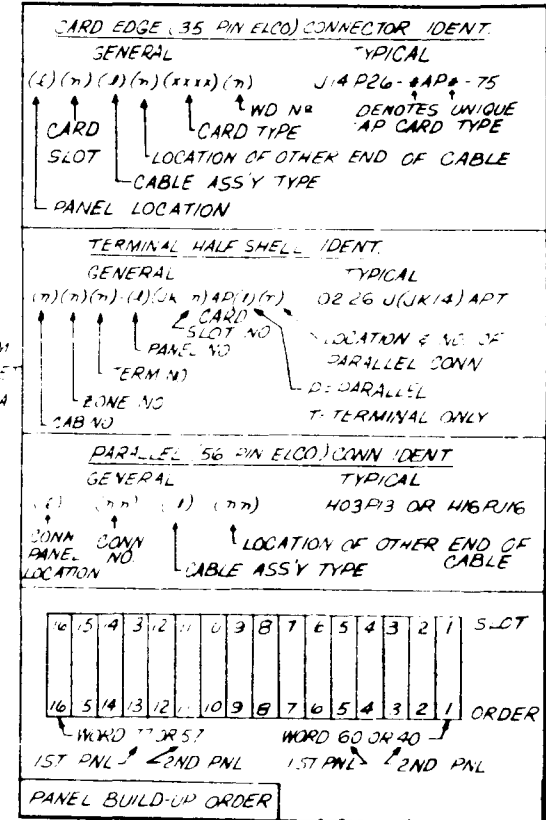 CARD EDGE (35 PIN ELCO) CONNECTOR IDENT.
GENERAL TYPICAL
(l)(n)(l)(n)(xxxx)(n) J14P26-*AP*-75
WD NO DENOTES UNIQUE
CARD CARD TYPE AP CARD TYPE
SLOT LOCATION OF OTHER END OF CABLE
CABLE ASS'Y TYPE
PANEL LOCATION
TERMINAL HALF SHELL IDENT.
GENERAL TYPICAL
(n)(n)(n)-(l)(JK n)AP(l)(n) 0226 J(JK14)APT
CARD
SLOT NO LOCATION & NO. OF
PANEL NO PARALLEL CONN
TERM NO P=PARALLEL
ZONE NO T=TERMINAL ONLY
CAB NO
PARALLEL (56 PIN ELCO) CONN IDENT
GENERAL TYPICAL
(l) (nn) (l) (nn) H03P13 OR H16PJ16
CONN CONN LOCATION OF OTHER END OF
PANEL NO. CABLE
LOCATION CABLE ASS'Y TYPE
16 15 14 13 12 11 10 9 8 7 6 5 4 3 2 1 SLOT
16 5 14 13 12 11 10 9 8 7 6 5 4 3 2 1 ORDER
WORD 77 OR 57 WORD 60 OR 40
1ST PNL 2ND PNL 1ST PNL 2ND PNL
PANEL BUILD-UP ORDER